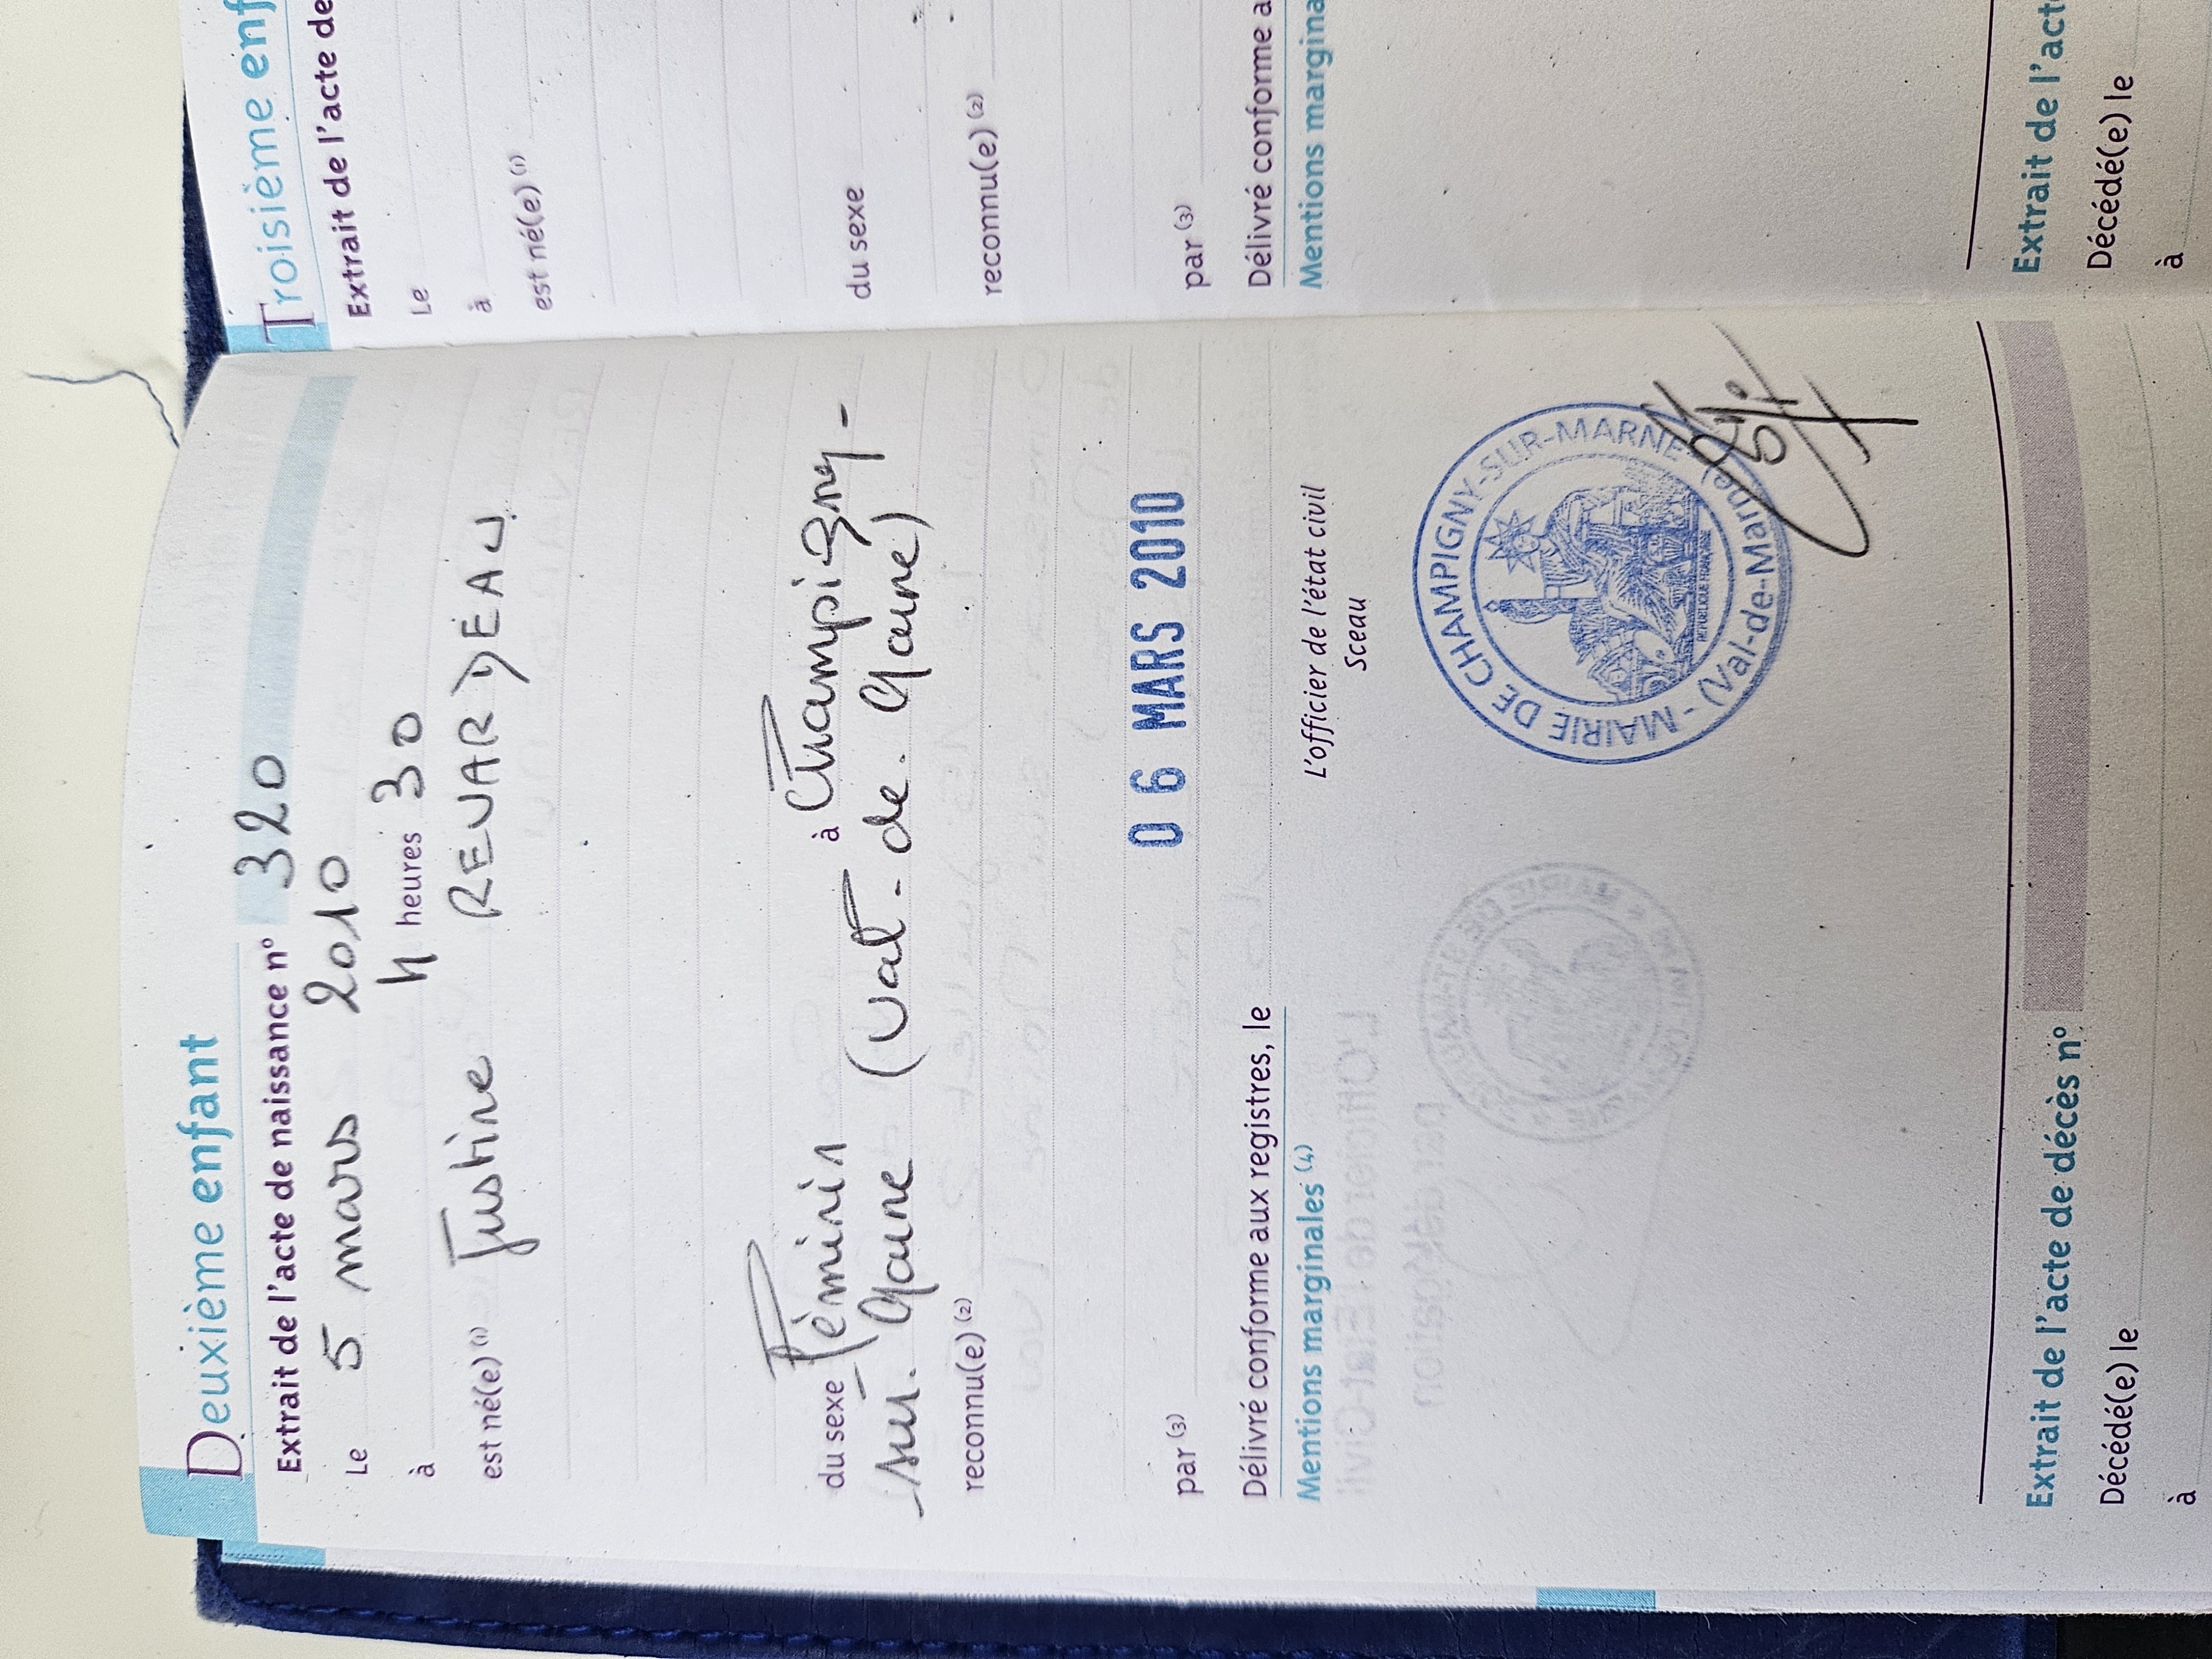 Deuxième enfant
Extrait de l'acte de naissance nº 320
Le 5 mars 2010
à 4 heures 30
est né(e) (1) Justine REVARDEAU
du sexe Féminin à Champigny-
-sur-Marne (Val-de-Marne)
reconnu(e) (2)
par (3)
06 MARS 2010
Délivré conforme aux registres, le
Mentions marginales (4)
L'officier de l'état civil
Sceau
MAIRIE DE CHAMPIGNY-SUR-MARNE - (Val-de-Marne)
REPUBLIQUE FRANÇAISE
Extrait de l'acte de décès nº
Décédé(e) le
à
Troisième enf
Extrait de l'acte de
Le
à
est né(e) (1)
du sexe
reconnu(e) (2)
par (3)
Délivré conforme a
Mentions margina
Extrait de l'act
Décédé(e) le
à